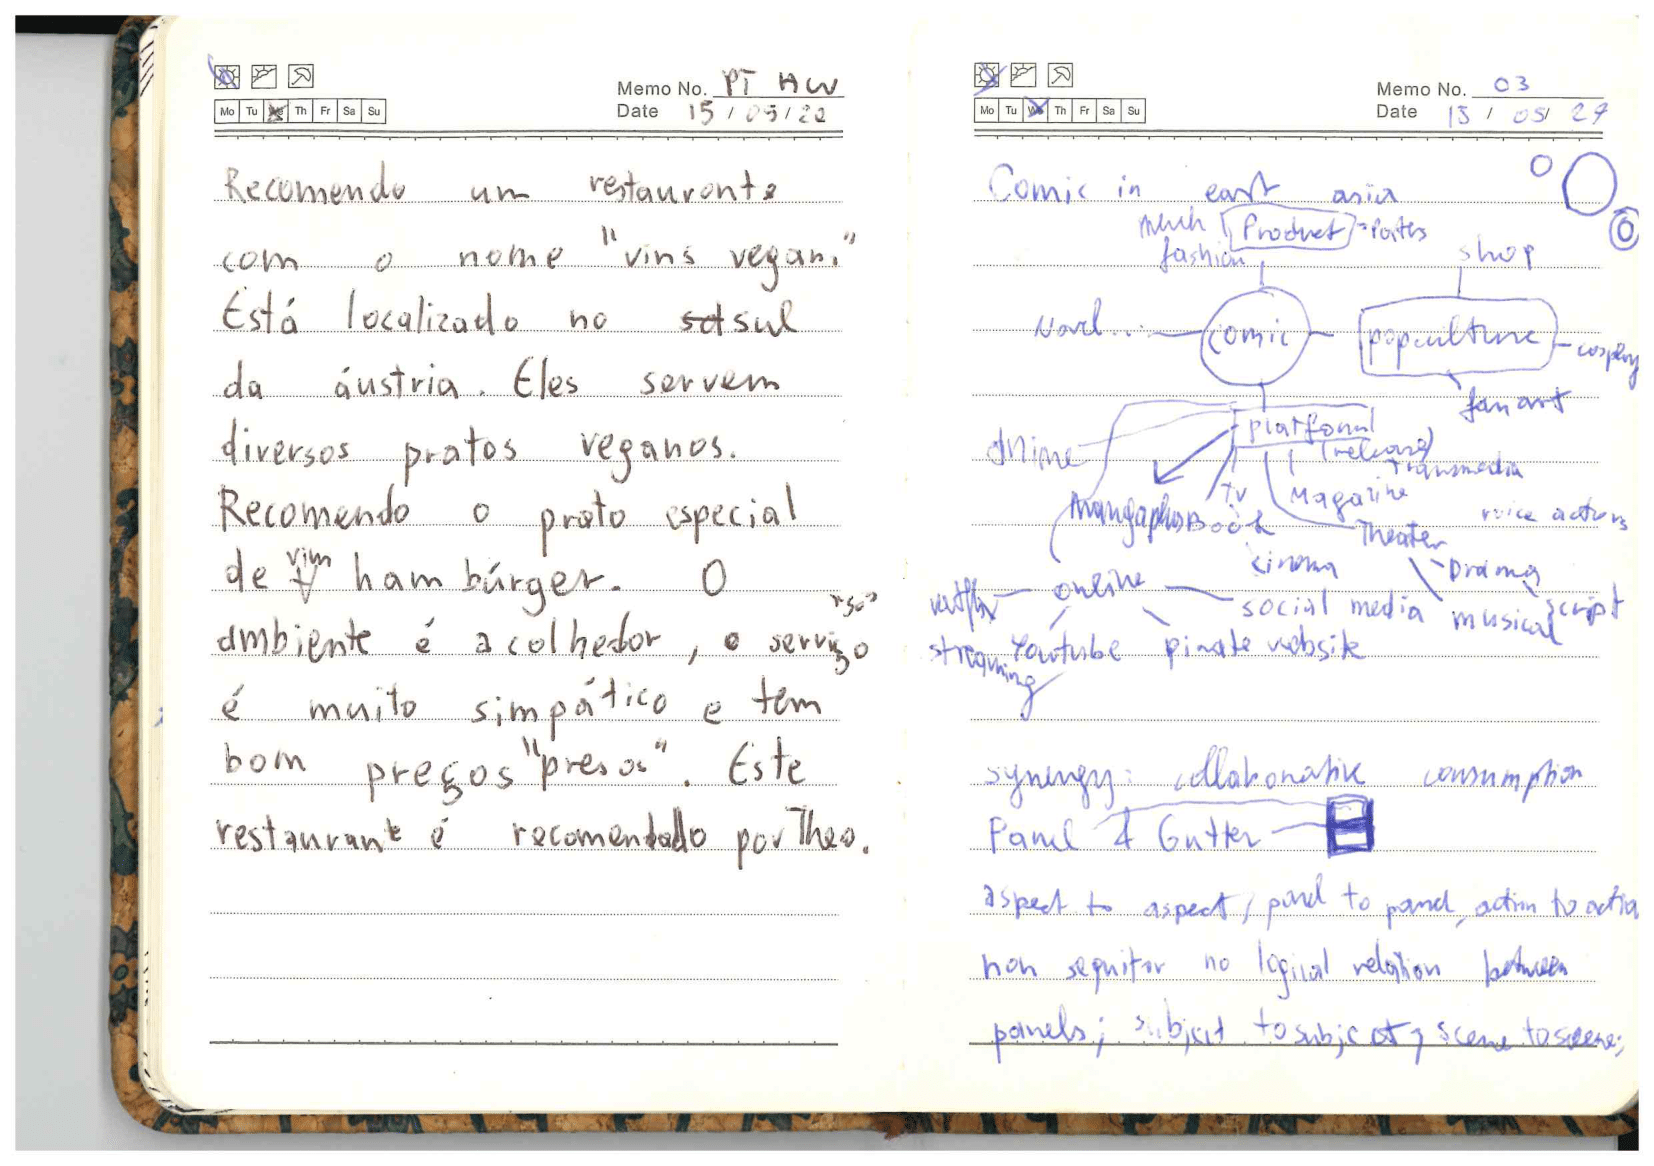 Memo No. PT HW
Mo Tu We Th Fr Sa Su
Date 15/05/22
Recomendo um restaurante
com o nome "vins vegan."
Está localizado no sul
da áustria. Eles servem
diversos pratos veganos.
Recomendo o prato especial
de vim hambúrger. O
"so"
ambiente é acolhedor, o serviço
é muito simpático e tem
bom preços "presos". Este
restaurante é recomendado por Theo.
Memo No. 03
Mo Tu We Th Fr Sa Su
Date 15/05/
Comic in east asia
merch Product
fashion shop
Novel... comic popculture cosplay
fan art
platform
Anime (release)
Transmedia
TV Magazine
Mangaplus Book voice actors
Theater
cinema Drama
netflix online social media musical script
streaming Youtube pirate website
synergy: collaborative consumption
Panel & Gutter
aspect to aspect, panel to panel, action to actio
non sequitor no logical relation between
panels; subject to subject; scene to scene;